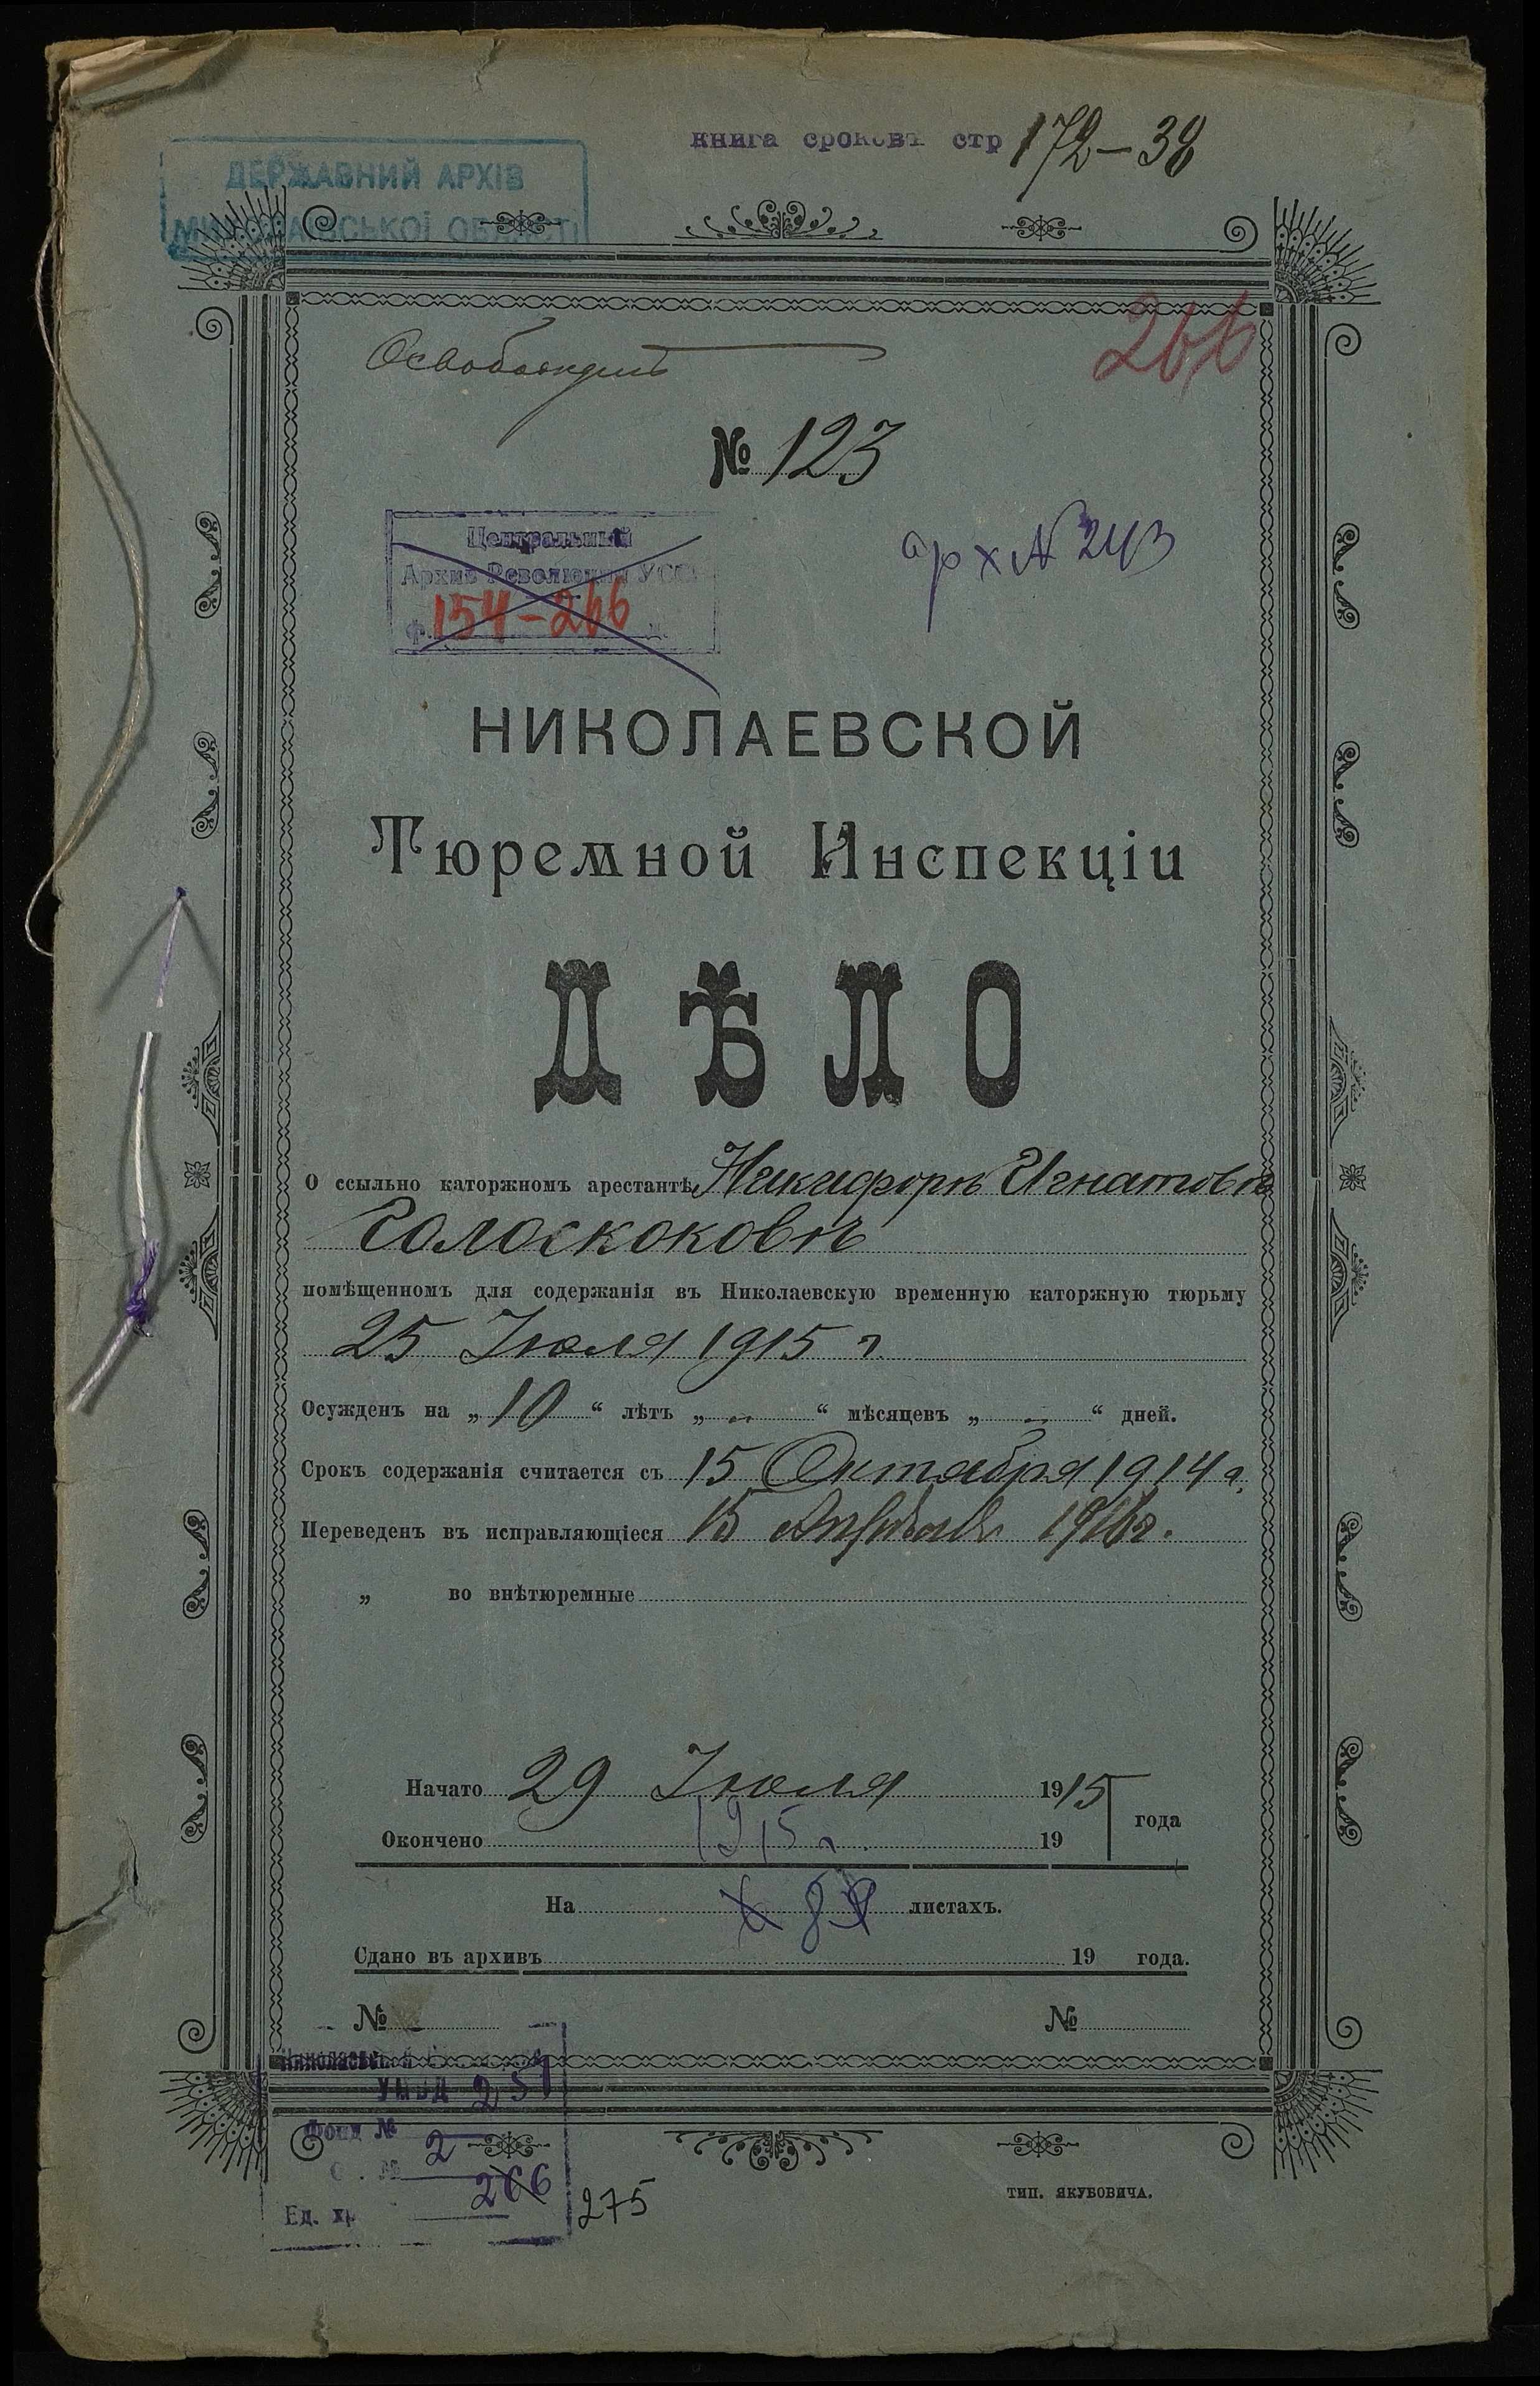 книга сроковъ стр 172–38
ДЕРЖАВНИЙ АРХІВ
МИКОЛАЇВСЬКОЇ ОБЛАСТІ
266
№ 123
Центральный
Архив Революции УССР
ф. 154-266 д.
арх № 243
НИКОЛАЕВСКОЙ
Тюремной Инспекціи
ДѢЛО
О ссыльно каторжномъ арестантѣ Никифорѣ Игнатовѣ
Голоскоковѣ
помѣщенномъ для содержанія въ Николаевскую временную каторжную тюрьму
25 Іюля 1915 г.
Осужденъ на „ 10 “ лѣтъ „ – “ мѣсяцевъ „ – “ дней.
Срокъ содержанія считается съ 15 Октября 1914 г.
Переведенъ въ исправляющіеся 15 Апрѣля 1916 г.
„ во внѣтюремные
Начато 29 Іюля 1915 года
Окончено 1915 г. 19
На 8 листахъ.
Сдано въ архивъ 19 года.
№ №
УМВД 231
Фонд № 2
266
Ед. хр
275
ТИП. ЯКУБОВИЧА.